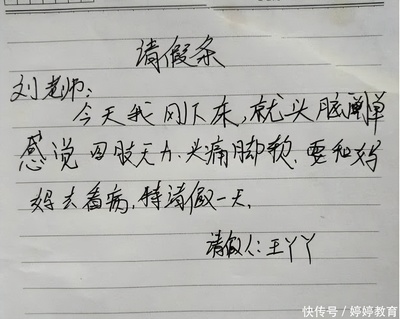 请假条
刘老师:
今天我刚下床,就头脑浑浑
感觉四肢无力、头痛脚软,要和妈
妈去看病,特请假一天。
请假人:王丫丫
快传号/婷婷教育